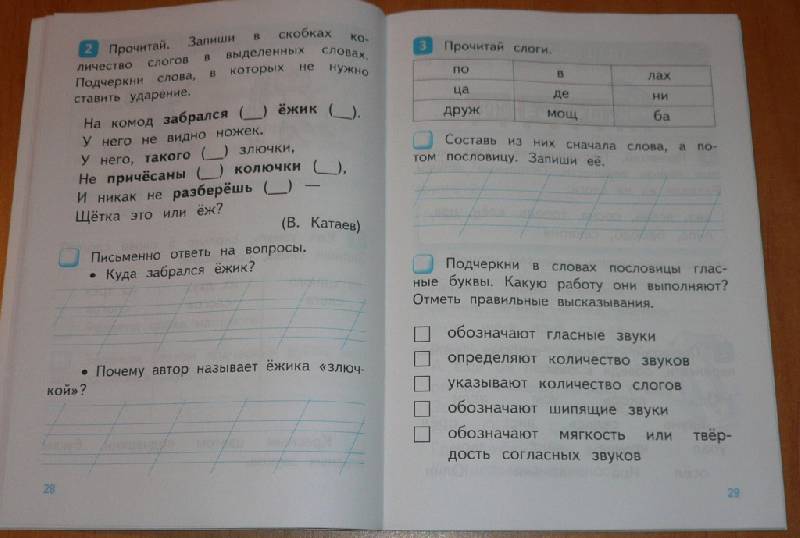 2 Прочитай. Запиши в скобках ко-
личество слогов в выделенных словах.
Подчеркни слова, в которых не нужно
ставить ударение.
На комод забрался (__) ёжик (__).
У него не видно ножек.
У него, такого (__) злючки,
Не причёсаны (__) колючки (__),
И никак не разберёшь (__) —
Щётка это или ёж?
(В. Катаев)
Письменно ответь на вопросы.
• Куда забрался ёжик?
• Почему автор называет ёжика «злюч-
кой»?
28
3 Прочитай слоги.
по в лах
ца де ни
друж мощ ба
Составь из них сначала слова, а по-
том пословицу. Запиши её.
Подчеркни в словах пословицы глас-
ные буквы. Какую работу они выполняют?
Отметь правильные высказывания.
обозначают гласные звуки
определяют количество звуков
указывают количество слогов
обозначают шипящие звуки
обозначают мягкость или твёр-
дость согласных звуков
29